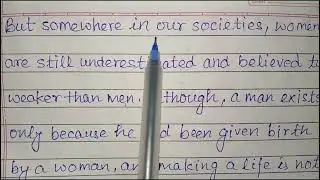 But somewhere in our societies, women
are still underestimated and believed to
weaker than men. although, a man exists
only because he had been given birth
by a woman, and making a life is not